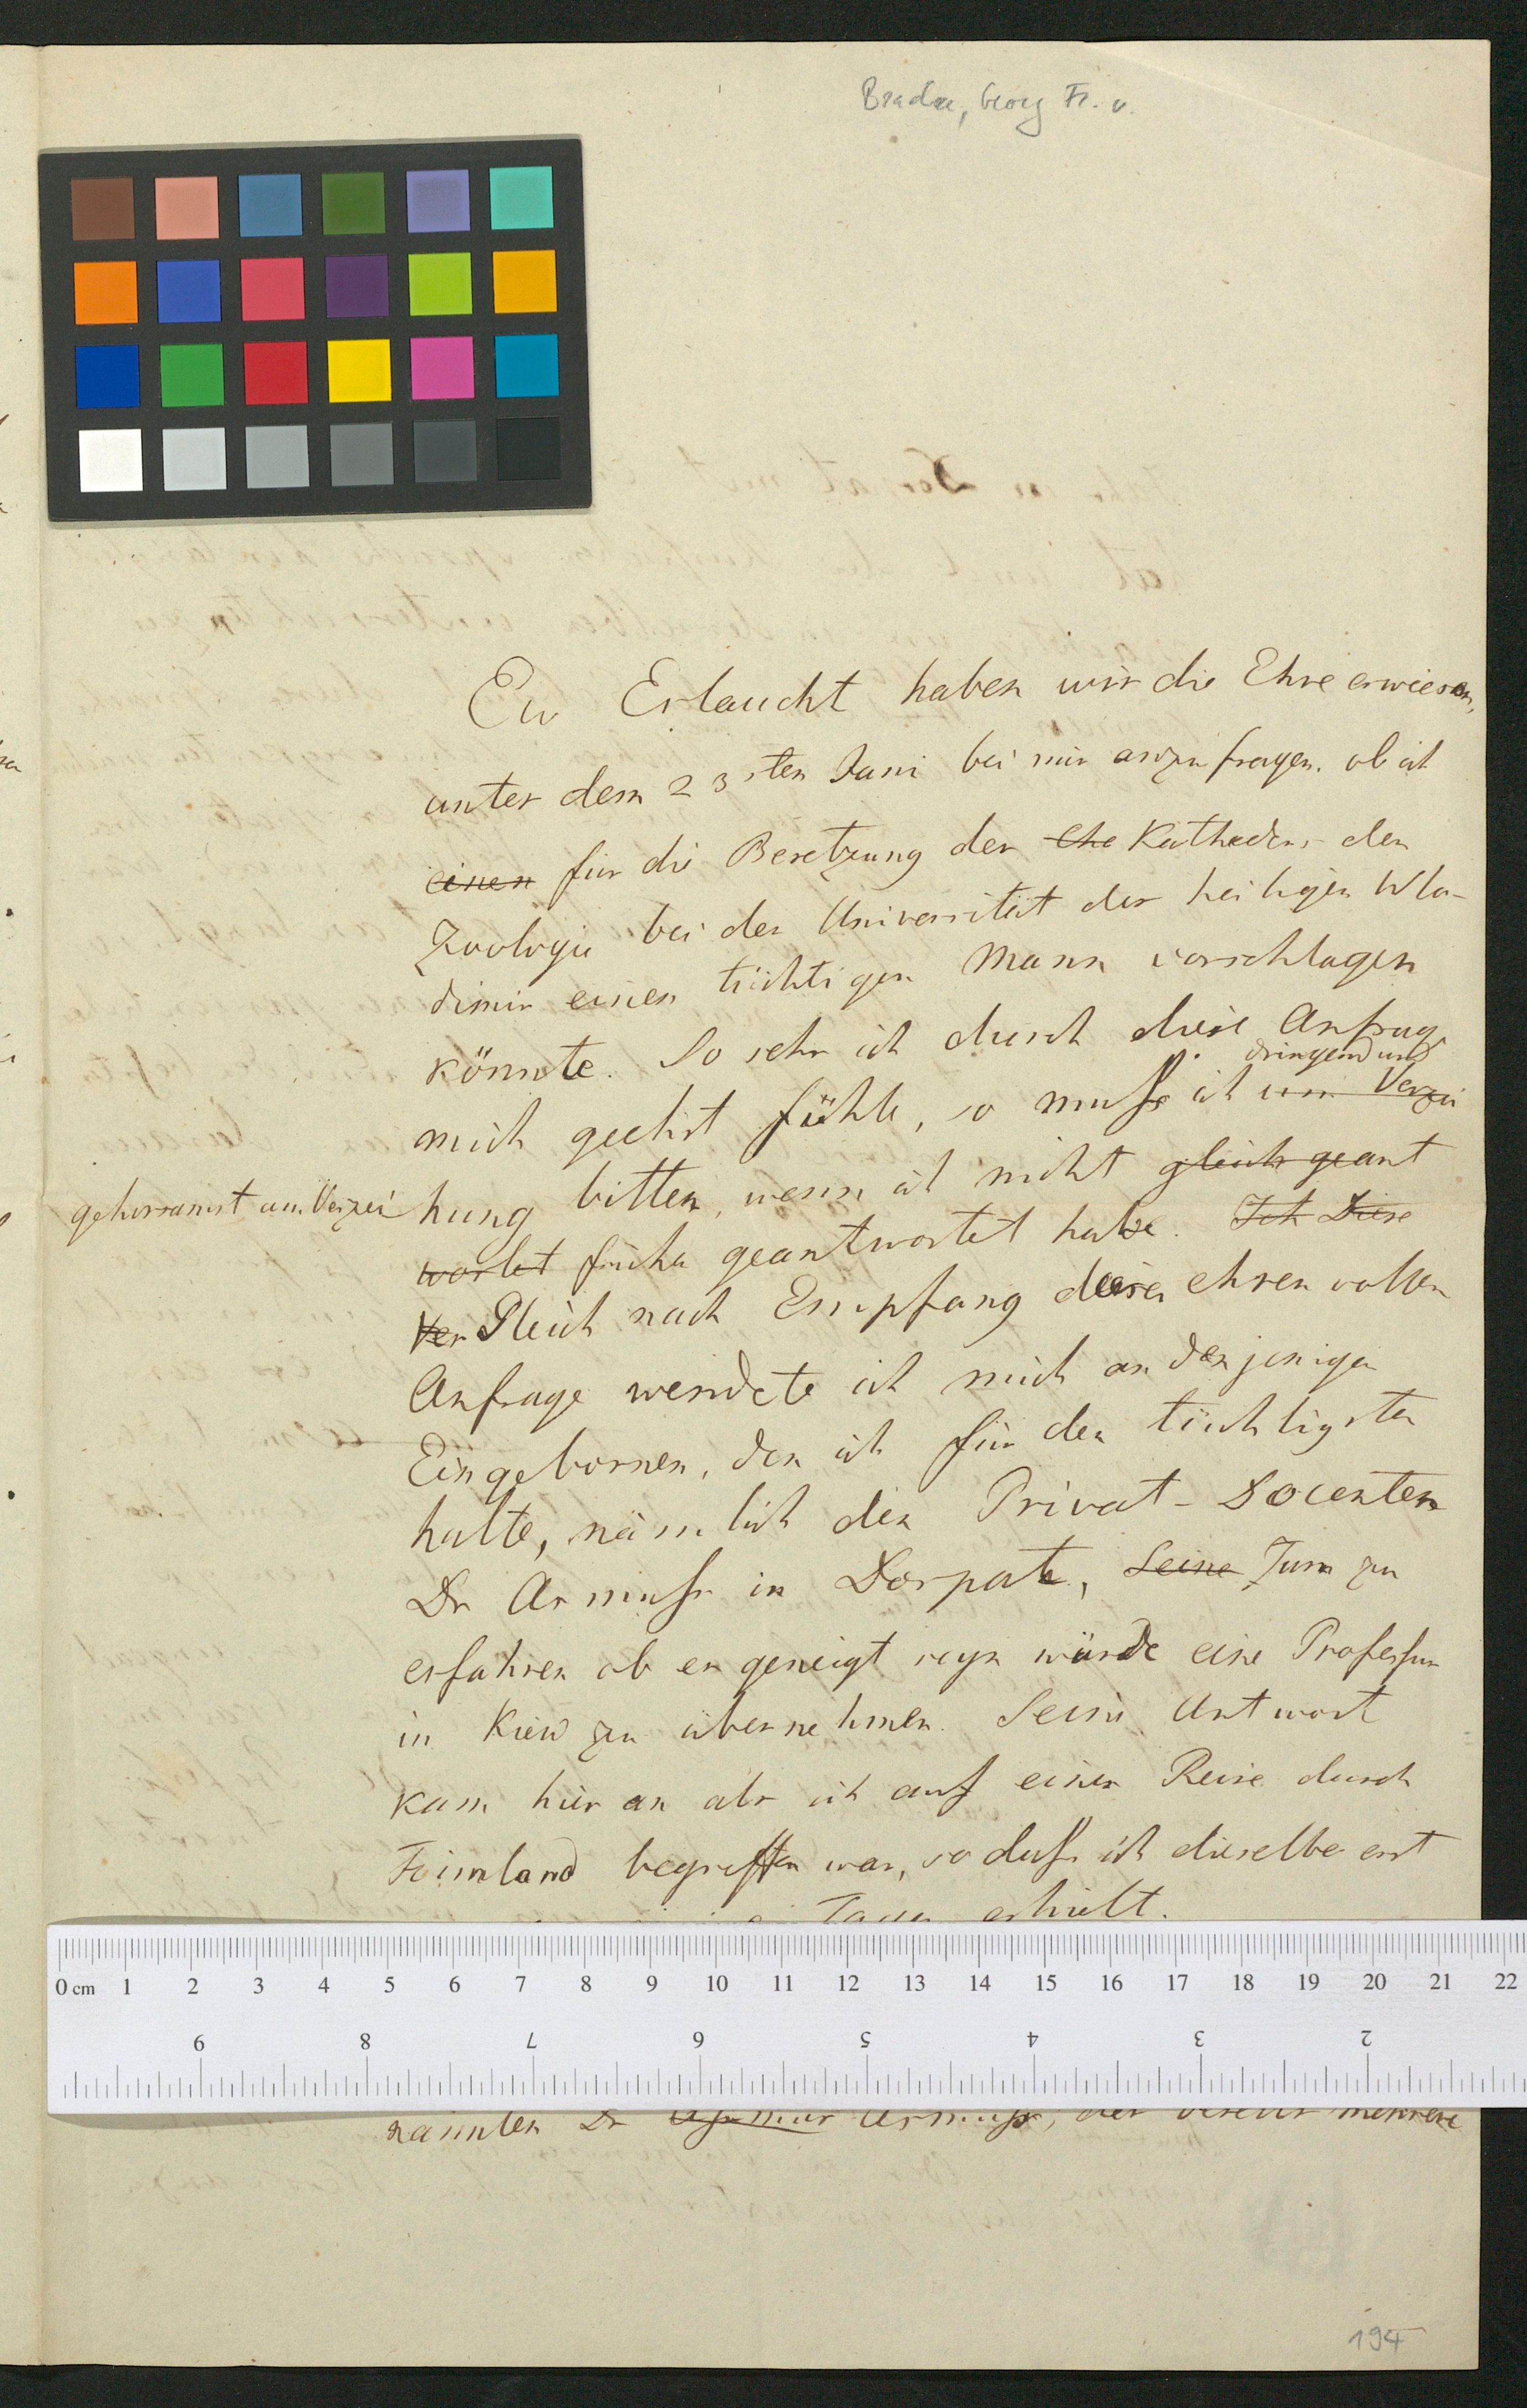 Bradke, Georg Fr. v.
Ew Erlaucht haben mir die Ehre erwiesen,
unter dem 23sten Juni bei mir anzufragen, ob ich
einen für die Besetzung des Che Katheders der
Zoologie bei der Universität des heiligen Wla-
dimir einen tüchtigen Mann vorschlagen
könnte. So sehr ich durch diese Anfrage
dringend und
mich geehrt fühle, so muß ich um Verzei
gehorsamst um Verzei hung bitten, wenn ich nicht gleich geant
wortet früher geantwortet habe. Ich Diese
Ver Gleich nach Empfang dieser ehrenvollen
Anfrage wendete ich mich an denjenigen
Eingebornen, den ich für den tüchtigsten
halte, nämlich den Privat-Docenten
Dr Asmuß in Dorpat, Seine Jum zu
erfahren ob er geneigt seyn würde eine Professur
in Kiew zu übernehmen. Seine Antwort
kam hier an als ich auf einer Reise durch
Finnland begriffen war, so daß ich dieselbe erst
Tagen erhielt.
0 cm 1 2 3 4 5 6 7 8 9 10 11 12 13 14 15 16 17 18 19 20 21 22
9 8 7 6 5 4 3 2
nannten Dr Asmuß, der bereits mehrere
194